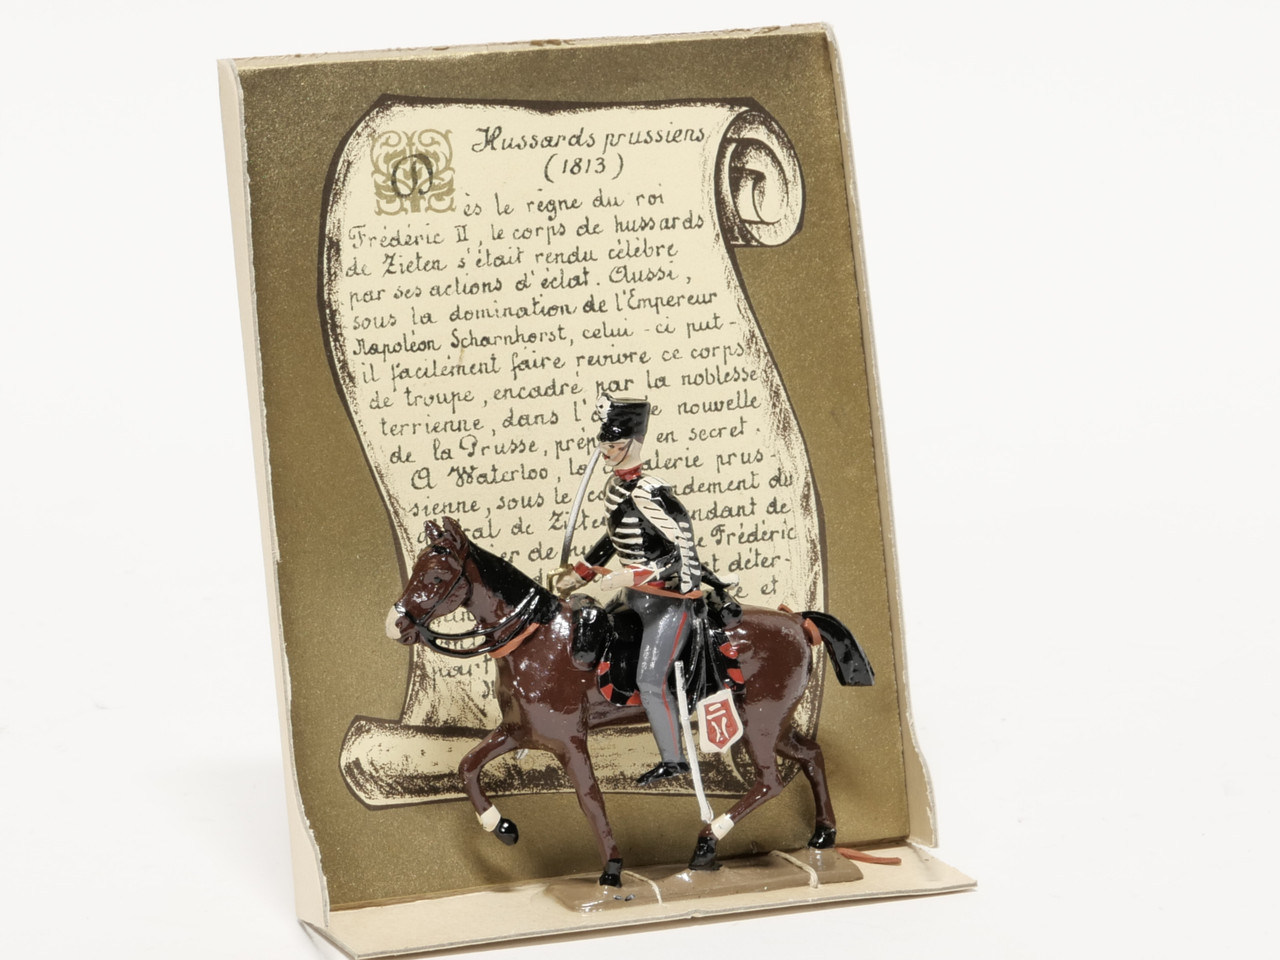 Hussards prussiens
(1813)
Dès le règne du roi
Frédéric II, le corps de hussards
de Zieten s'était rendu célèbre
par ses actions d'éclat. Aussi,
sous la domination de l'Empereur
Napoléon Scharnhorst, celui-ci put-
il facilement faire revivre ce corps
de troupe, encadré par la noblesse
terrienne, dans l' nouvelle
de la Prusse, en secret
A Waterloo, prus-
sienne, sous le du
de de
de Frédéric
déter-
et